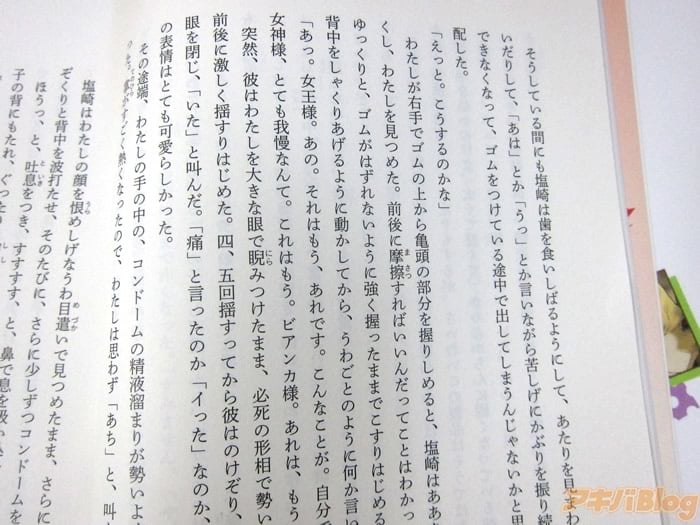 そうしている間にも塩崎は歯を食いしばるようにして、あたりを見まわ
いだりして、「あは」とか「うっ」とか言いながら苦しげにかぶりを振り続
できなくなって、ゴムをつけている途中で出してしまうんじゃないかと思
配した。
「えっと。こうするのかな」
わたしが右手でゴムの上から亀頭の部分を握りしめると、塩崎はああ
くし、わたしを見つめた。前後に摩擦すればいいんだってことはわかっ
ゆっくりと、ゴムがはずれないように強く握ったままでこすりはじめる
背中をしゃくりあげるように動かしてから、うわごとのように何か言い
「あっ。女王様。あの。それはもう、あれです。こんなことが。自分で
女神様、とても我慢なんて。これはもう。ビアンカ様。あれは、もう
突然、彼はわたしを大きな眼で睨みつけたまま、必死の形相で勢い
前後に激しく揺すりはじめた。四、五回揺すってから彼はのけぞり、
眼を閉じ、「いた」と叫んだ。「痛」と言ったのか「イった」なのか、
の表情はとても可愛らしかった。
その途端、わたしの手の中の、コンドームの精液溜まりが勢いよ
がすごく熱くなったので、わたしは思わず「あち」と、叫
塩崎はわたしの顔を恨めしげなうわ目遣いで見つめたまま、さらに
ぞくりと背中を波打たせ、そのたびに、さらに少しずつコンドームを
ほうっ、と、吐息をつき、すすすす、と、鼻で息を吸い
子の背にもたれ、ぐ
アキバBlog